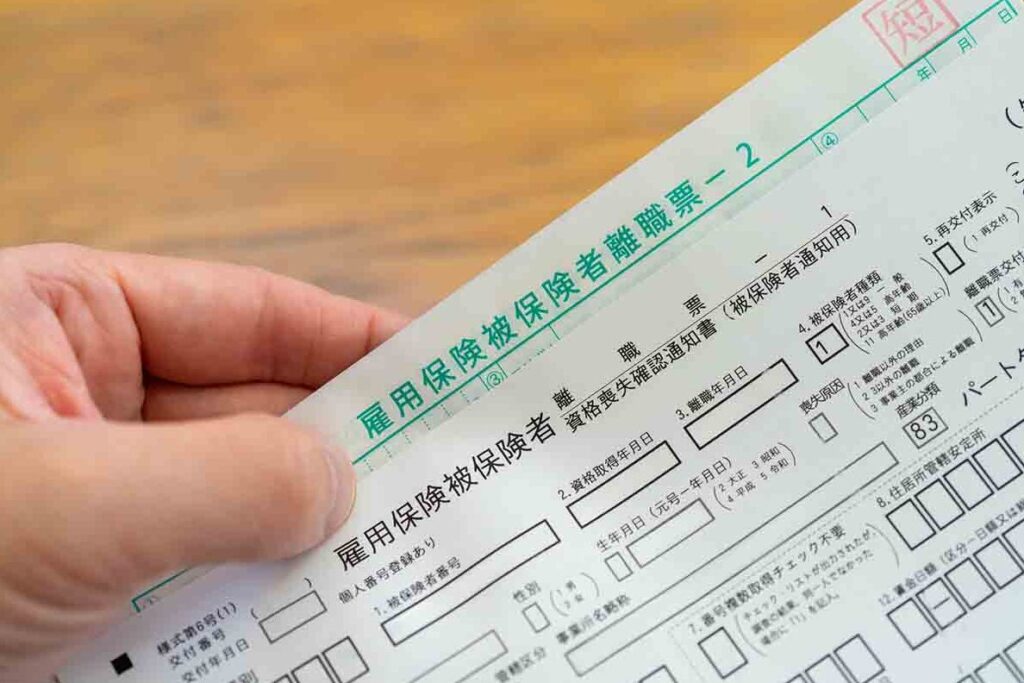 短
雇用保険被保険者離職票－2
④
年 月 日
③
雇用保険被保険者 離職票－1
資格喪失確認通知書(被保険者通知用)
様式第6号(1)
個人番号登録あり
交付番号
交付年月日
1.被保険者番号
2.資格取得年月日
3.離職年月日
4.被保険者種類
1
1又は9 一般
4又は5 高年齢
2又は3 短期
11 高年齢(65歳以上)
5.再交付表示
(1 再交付)
性別
(1 男
2 女)
生年月日(元号－年月日)
(2 大正 3 昭和
4 平成 5 令和)
喪失原因
(1 離職以外の理由
2 3以外の離職
3 事業主の都合による離職)
離職票交付
1
事業所名略称
産業分類
83
管轄区分
7.番号複数取得チェック不要
(チェック・リストが出力されたが、
調査の結果、同一人でなかった
場合に「1」を記入。)
8.住居所管轄安定所
12.賃金日額(区分－日額又は総